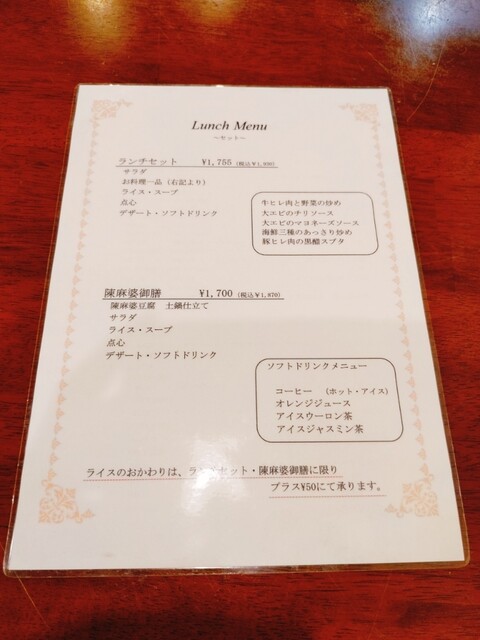 Lunch Menu
～セット～
ランチセット ¥1,755 (税込¥1,930)
サラダ
お料理一品（右記より）
ライス・スープ
点心
デザート・ソフトドリンク
牛ヒレ肉と野菜の炒め
大エビのチリソース
大エビのマヨネーズソース
海鮮三種のあっさり炒め
豚ヒレ肉の黒醋スブタ
陳麻婆御膳 ¥1,700 (税込¥1,870)
陳麻婆豆腐 土鍋仕立て
サラダ
ライス・スープ
点心
デザート・ソフトドリンク
ソフトドリンクメニュー
コーヒー （ホット・アイス）
オレンジジュース
アイスウーロン茶
アイスジャスミン茶
ライスのおかわりは、ランチセット・陳麻婆御膳に限り
プラス¥50にて承ります。